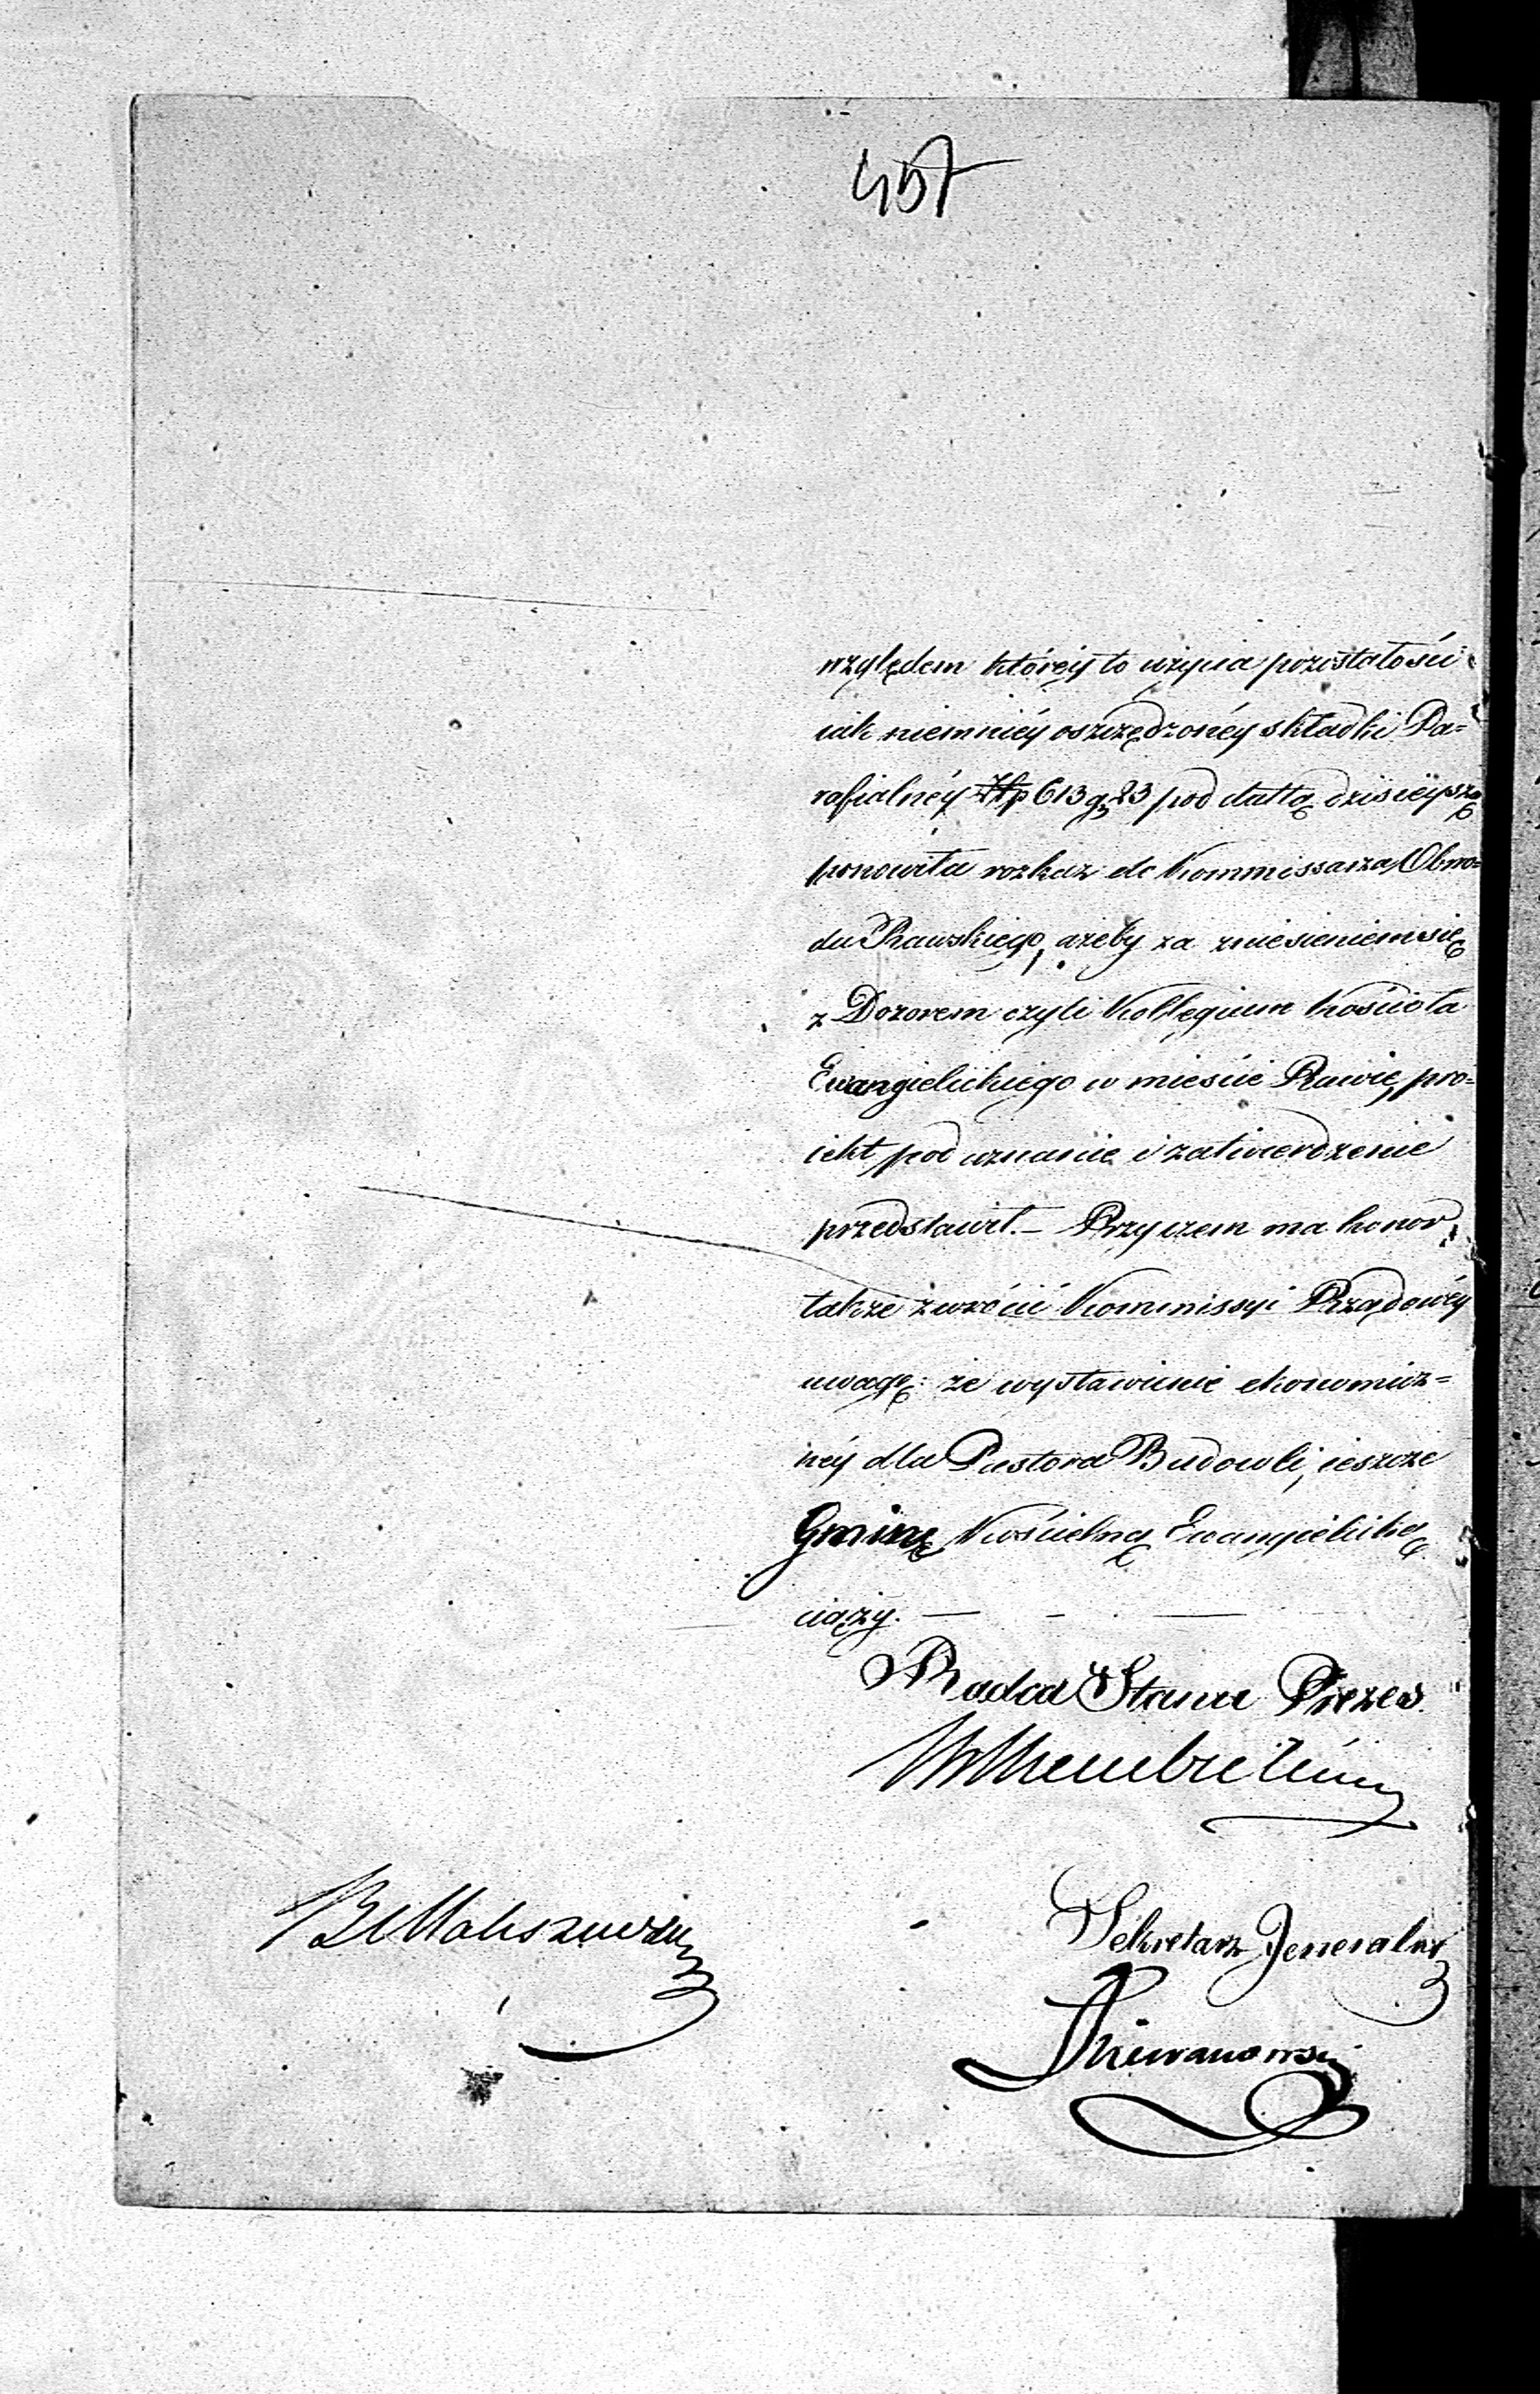 457
względem któréy to użycia pozostałości
iak niemniéy oszczędzonéy składki Pa=
rafialnéy Złp 613 gr 23 pod dattą dzisieyszą
ponowiła rozkaz do Kommissarza Obwo=
du Rawskiego, ażeby za zniesieniem się
z Dozorem czyli Kollegium Kościoła
Ewangielickiego w mieście Rawie, pro=
iekt pod uznanie i zatwierdzenie
przedstawił. – Przyczem ma honor
także zwrócić Kommissyi Rządowéy
uwagę: że wystawienie ekonomicz=
néy dla Pastora Budowli, ieszcze
Gminę Kościelną Ewangielicką
ciąży. — - —
Radca Stanu Prezes
Sekretarz Jeneralny